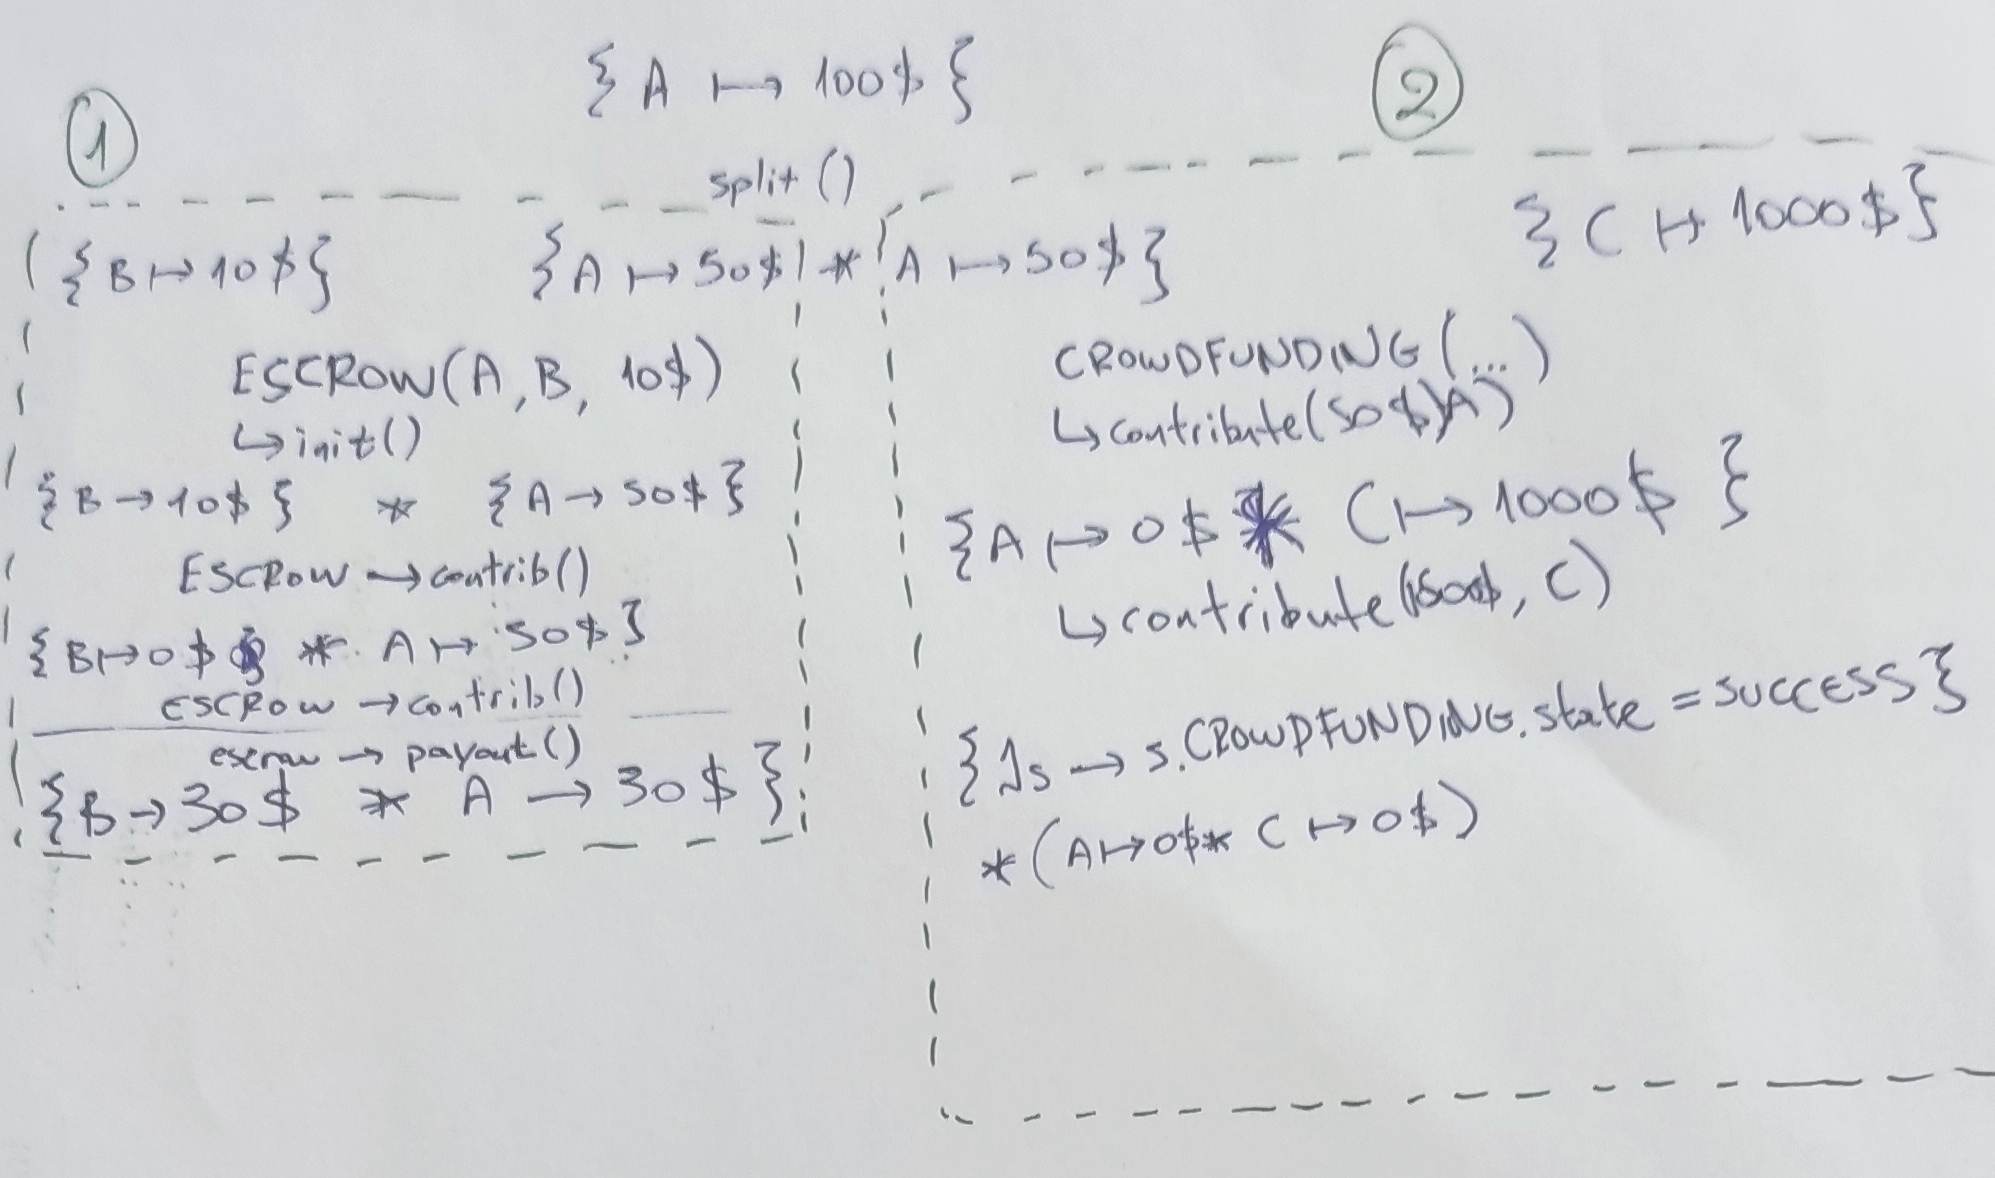 { A ↦ 100$ }
split()
①
{ B ↦ 10$ } { A ↦ 50$ *
ESCROW(A, B, 10$)
↳ init()
{ B → 10$ } * { A → 50$ }
ESCROW → contrib()
{ B ↦ 0$ * A ↦ 50$ }
ESCROW → contrib()
escrow → payout()
{ B → 30$ * A → 30$ }
②
A ↦ 50$ } { C ↦ 1000$ }
CROWDFUNDING(...)
↳ contribute(50$, A)
{ A ↦ 0$ * C ↦ 1000$ }
↳ contribute( , C)
{ ∃s → s.CROWDFUNDING.state = SUCCESS }
* (A ↦ 0$ * C ↦ 0$)